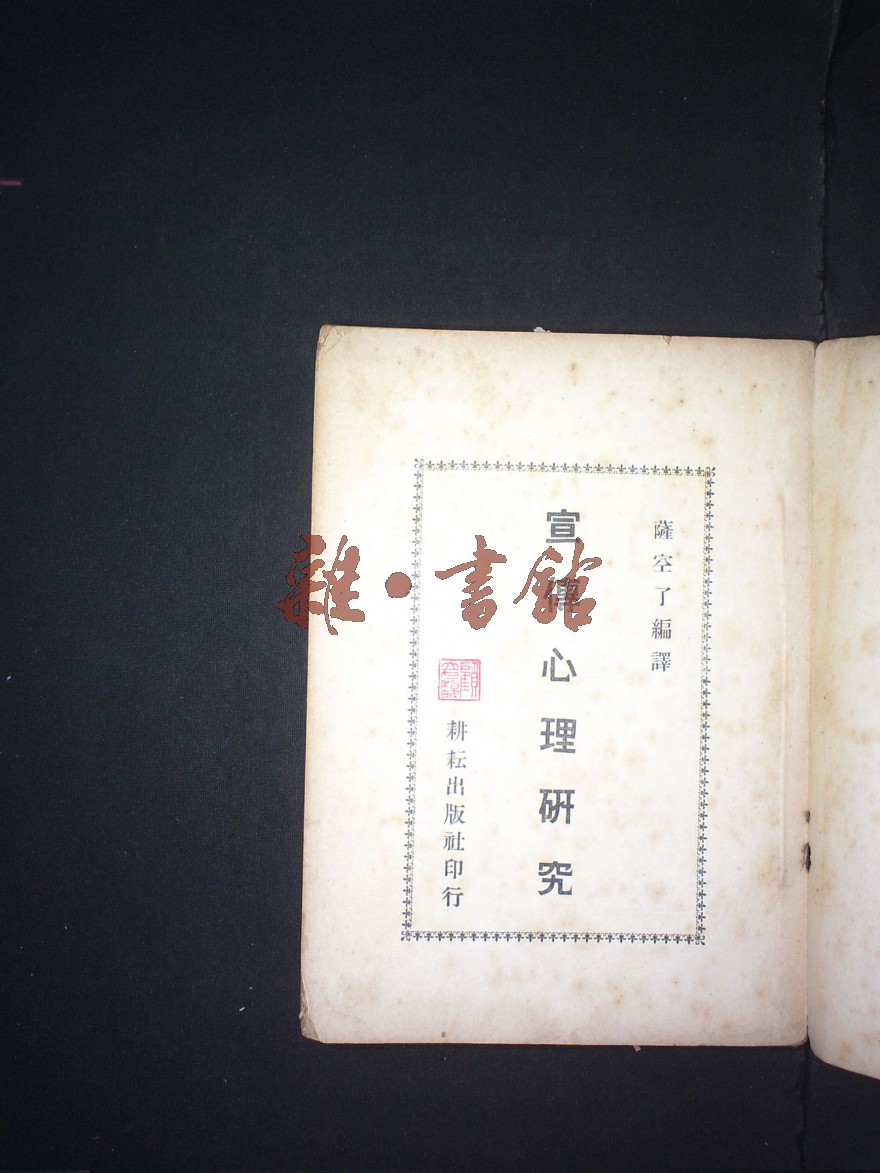 薩空了編譯
宣傳心理研究
耕耘出版社印行
雜·書館